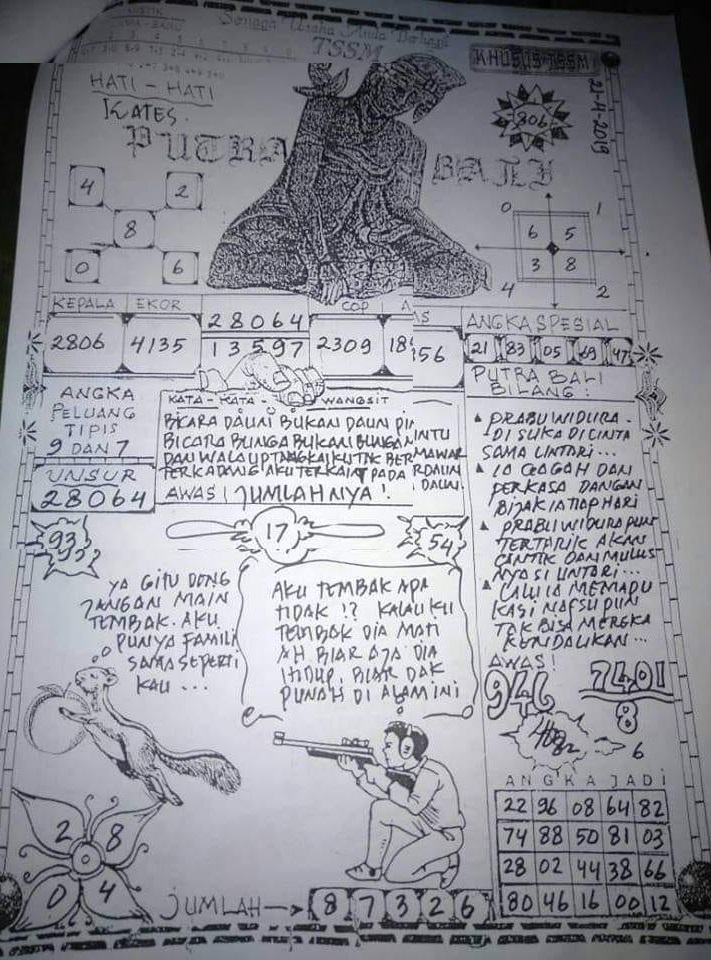 Semoga Usaha Anda Berhasil
TSSM
KHUSUS TSSM
HATI - HATI
KATES.
806
21-11-2019
PUTRA BALI
4 2
8
0 6
0 1
6 5
3 8
4 2
KEPALA EKOR
2806 4135
28064
13597
COP
2309
56
ANGKA SPESIAL
21 83 05 69 47
ANGKA
PELUANG
TIPIS
9 DAN 7
UNSUR
28064
KATA - KATA - WANGSIT
BICARA DAUN BUKAN DAUN
BICARA BUNGA BUKAN BUNGA
DAN WALAUPTANGKAIKUTAK BER MAWAR
TERKADANG AKU TERKAIT PADA DAUN
AWAS ! JUMLAHNYA !
PUTRA BALI
BILANG :
PRABU WIDURA.
DI SUKA DI CINTA
SAMA UNTARI ...
IA GAGAH DAN
PERKASA DANGAN
BIJAK IA TIAP HARI
PRABU WIDURA PUN
TERTARIK AKAN
CANTIK DAN MULUS
NYA SI UNTARI ...
LALU IA MEMADU
KASI NAFSU PUN
TAK BISA MEREKA
KENDALIKAN ...
AWAS!
946 7401
8
6
93
17
54
YA GITU DONG
JANGAN MAIN
TEMBAK. AKU
PUNYA FAMILI
SAMA SEPERTI
KAU ...
AKU TEMBAK APA
TIDAK !? KALAU KU
TEMBAK DIA MATI
AH BIAR AJA DIA
HIDUP. BIAR DAK
PUNAH DI ALAM INI
ANGKA JADI
22 96 08 64 82
74 88 50 81 03
28 02 44 38 66
80 46 16 00 12
2 8
0 4
JUMLAH → 8 7 3 2 6